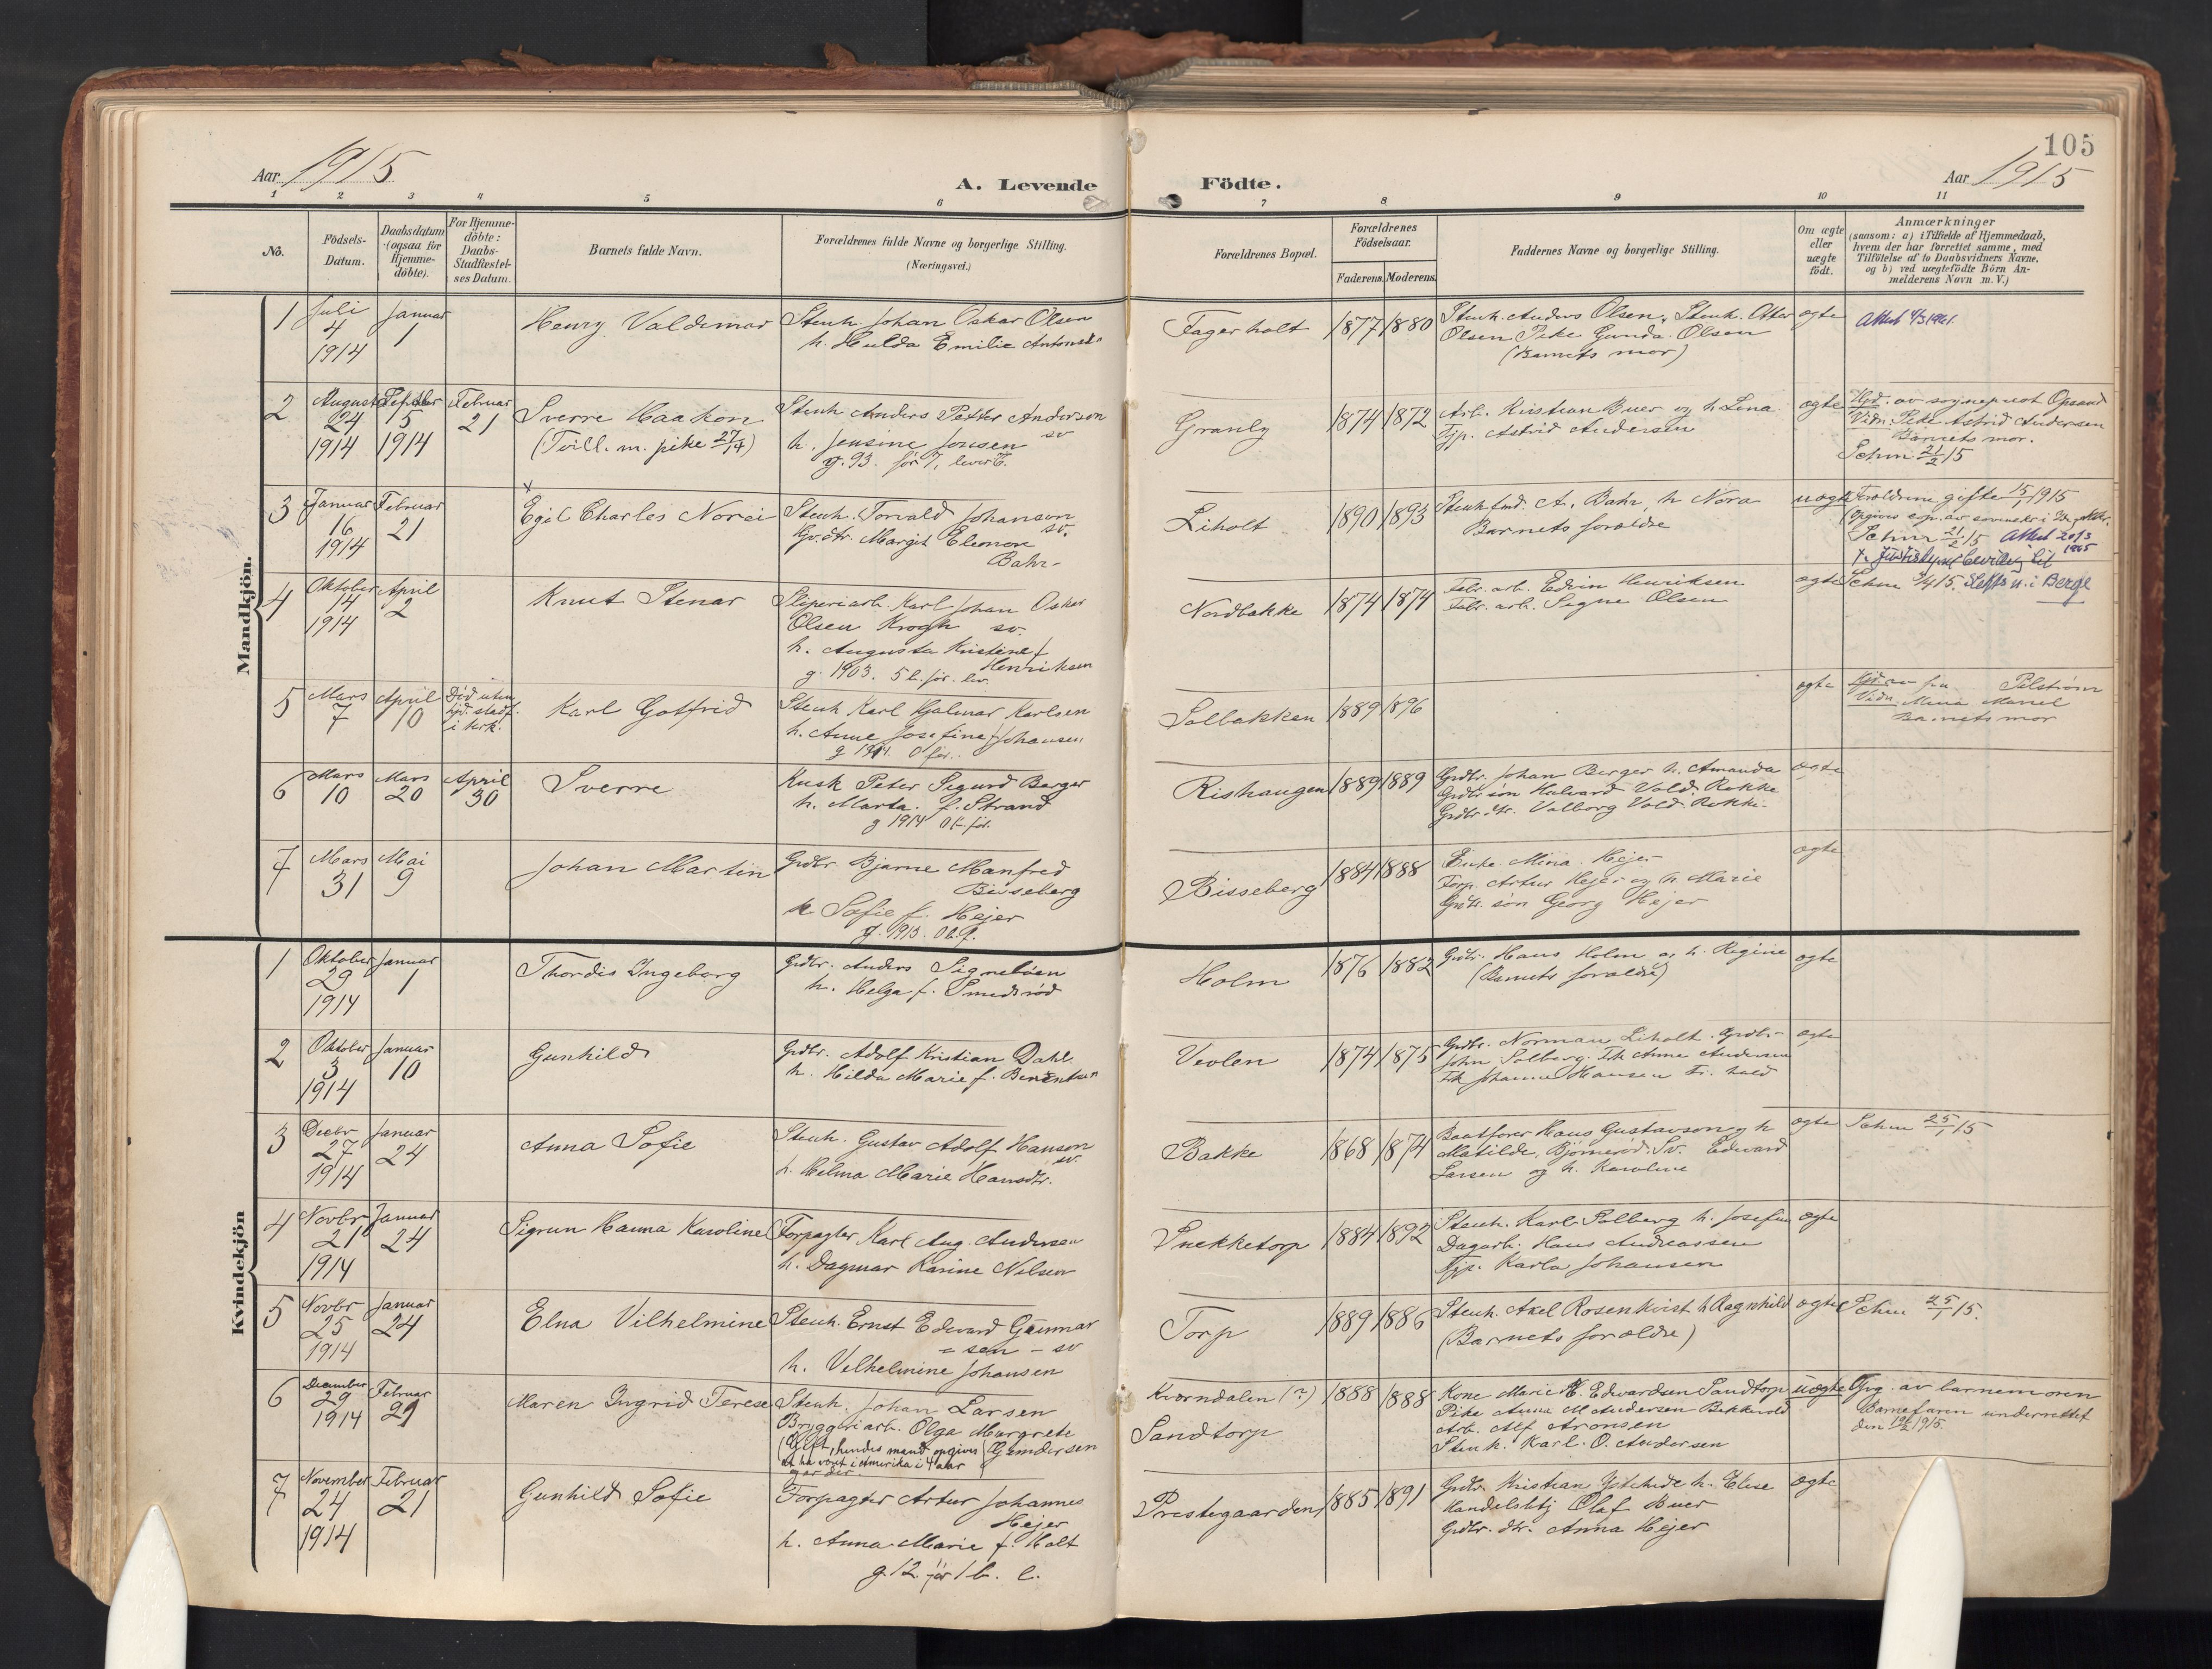 105
Aar 1915
A. Levende Födte.
Aar 1915
1 2 3 4 5 6 7 8 9 10 11
No.
Födsels-
Datum.
Daabsdatum
(ogsaa for
Hjemme-
döbte).
For Hjemme-
döbte:
Daabs-
Stadfæstel-
ses Datum.
Barnets fulde Navn.
Forældrenes fulde Navne og borgerlige Stilling.
(Næringsvei.)
Forældrenes Bopæl.
Forældrenes
Födselsaar.
Faderens. Moderens.
Faddernes Navne og borgerlige Stilling.
Om ægte
eller
uægte
födt.
Anmærkninger
(saasom: a) i Tilfælde af Hjemmedaab,
hvem der har forrettet samme, med
Tilföielse af to Daabsvidners Navne,
og b) ved uægtefödte Börn An-
melderens Navn m. V.)
Mandkjön.
1
Juli
4
1914
Januar
1
Henry Valdemar
Stenh. Johan Oskar Olsen
h. Hulda Emilie
Fagerholt
1877 1880
Stenh. Anders Olsen, Stenh.
Olsen Pike Gunda Olsen
(Barnets mor)
ægte
2
August
24
1914
Septbr
15
1914
Februar
21
Sverre Haakon
(Tvill. m. pike 27/14)
Stenh Anders Petter Anderson
sv
h. Jensine Jensen
g. 93. før 7, lever 6.
Granly
1874 1872
Arb. Kristian Buer og h. Lena
Tjp. Astrid Andersen
ægte
Hjd. av sogneprest Opsand
Vidn. Pike Astrid Andersen
Barnets mor.
Schm 21/2 15
3
Januar
16
1914
Februar
21
x
Egil Charles Norei
Stenh. Torvald Johanson
sv.
Gv. dtr. Margit Elenore
Bahr
Liholt
1890 1893
Stenh.fmd. A. Bahr, h Nora
Barnets forældre
uægte
Forældrene gifte 15/1 1915
Schm 21/2 15 Attest 20/3
1965
4
Oktober
14
1914
April
2
Knut Stenar
Sliperiarb. Karl Johan Oskar
Olsen Krogh sv.
h. Augusta Kristine f.
Henriksen
g. 1903. 5 b. før. lev.
Nordbakke
1874 1874
Fabr. arb. Edvin Henriksen
Fabr. arb. Signe Olsen
ægte
i Berge
5
Mars
7
April
10
Død uten
hjd. stadf.
i kirk.
Karl Gotfrid
Stenh Karl Hjalmar Karlsen
h. Anne Josefine Johansen
g 1914. 0 før.
Solbakken
1889 1896
ægte
Vidn.
Barnets mor
6
Mars
10
Mars
20
April
30
Sverre
Kusk Peter Sigurd Berger
h. Marta f. Strand
g 1914 0 b. før.
Rishaugen
1889 1889
Grdbr. Johan Berger h. Amanda
Grdbr. søn Halvard Vold. Rokke
Grdbr. dtr. Valborg Vold. Rokke.
ægte
7
Mars
31
Mai
9
Johan Martin
Grdbr. Bjarne Manfred
Bisseberg
h. Sofie f. Hejer
g. 1913. 0 b. f.
Bisseberg
1884 1888
Enke Mina Hejer
Forp. Artur Hejer og h. Marie
Grdbr. søn Georg Hejer
ægte
Kvindekjön
1
Oktober
29
1914
Januar
1
Thordis Ingeborg
Grdbr. Anders Signebøen
h. Helga f. Smedsrød
Holm
1876 1882
Grdbr. Hans Holm og h. Regine
(Barnets forældre)
ægte
2
Oktober
3
1914
Januar
10
Gunhild
Grdbr. Adolf Kristian Dahl
h. Hilda Marie f. Berentsen
Veolen
1874 1875
Grdbr. Norman Liholt. Grdbr.
John Solberg. Frk Anne Andersen
Frk Johanne Hansen Fr. hald
ægte
3
Decbr
27
1914
Januar
24
Anna Sofie
Stenh. Gustav Adolf Hanson
sv.
h. Helma Marie Hansdtr.
Bakke
1868 1874
Baatfører Hans Gustavson og h
Matilde, Bjørnerød. Sv. Edvard
Larsen og h. Karoline
ægte
Schm 25/1 15
4
Novbr
21
1914
Januar
24
Sigrun Hanna Karoline
Forpagter Karl Aug. Andersen
h. Dagmar Karine Nilsen
Snekketorp
1884 1892
Stenh. Karl Solberg h. Josefine
Dagarb. Hans Andreassen
Tjp. Karla Johansen
ægte
5
Novbr
25
1914
Januar
24
Elna Vilhelmine
Stenh. Ernst Edvard Gunnar
= sen - sv
h. Vilhelmine Johansen
Torp
1889 1886
Stenh. Axel Rosenkvist h. Ragnhild
(Barnets forældre)
ægte
Schm 25/1 15.
6
December
29
1914
Februar
21
Maren Ingrid Terese
Stenh. Johan Larsen
Bryggeriarb. Olga Margrete
Gundersen
(Gift, hendes mand opgives
at ha vært i Amerika i 4 aar
og er der.
Kvorndalen (?)
Sandtorp
1888 1888
Kone Marie E. Edvardsen Sandtorp
Pike Anna M Andersen Bekkevold
Arb. Alf Aronsen
Stenh. Karl O. Andersen
uægte
Opg. av barnemoren
Barnefaren underrettet
den 19/2 1915.
7
November
24
1914
Februar
21
Gunhild Sofie
Forpagter Artur Johannes
Hejer
h. Anna Marie f. Holt
g. 12. før 1 b. l.
Prestegaarden
1885 1891
Grdbr. Kristian h. Elise
Handelsbtj Olaf Buer
Grdbr. dtr. Anna Hejer
ægte